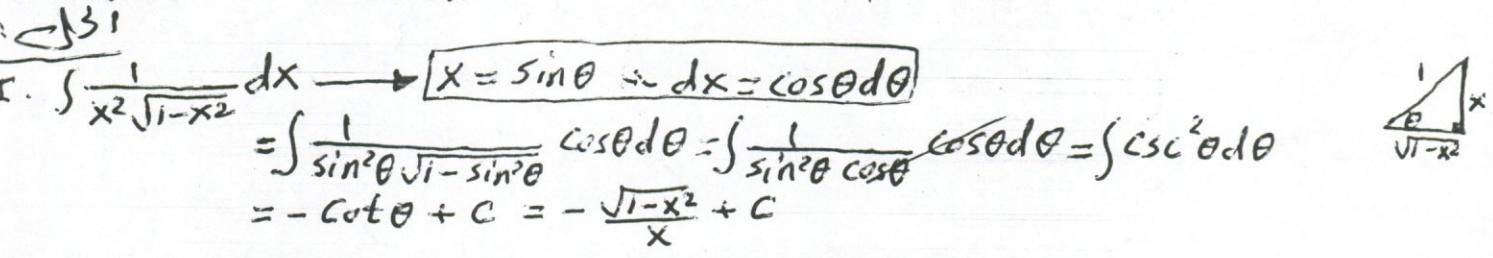 I. ∫ 1/(x²√(1-x²)) dx → x = sinθ ∴ dx = cosθdθ
= ∫ 1/(sin²θ√(1-sin²θ)) cosθdθ = ∫ 1/(sin²θ cosθ) cosθdθ = ∫csc²θdθ
= -cotθ + C = - √(1-x²)/x + C
1
x
θ
√(1-x²)